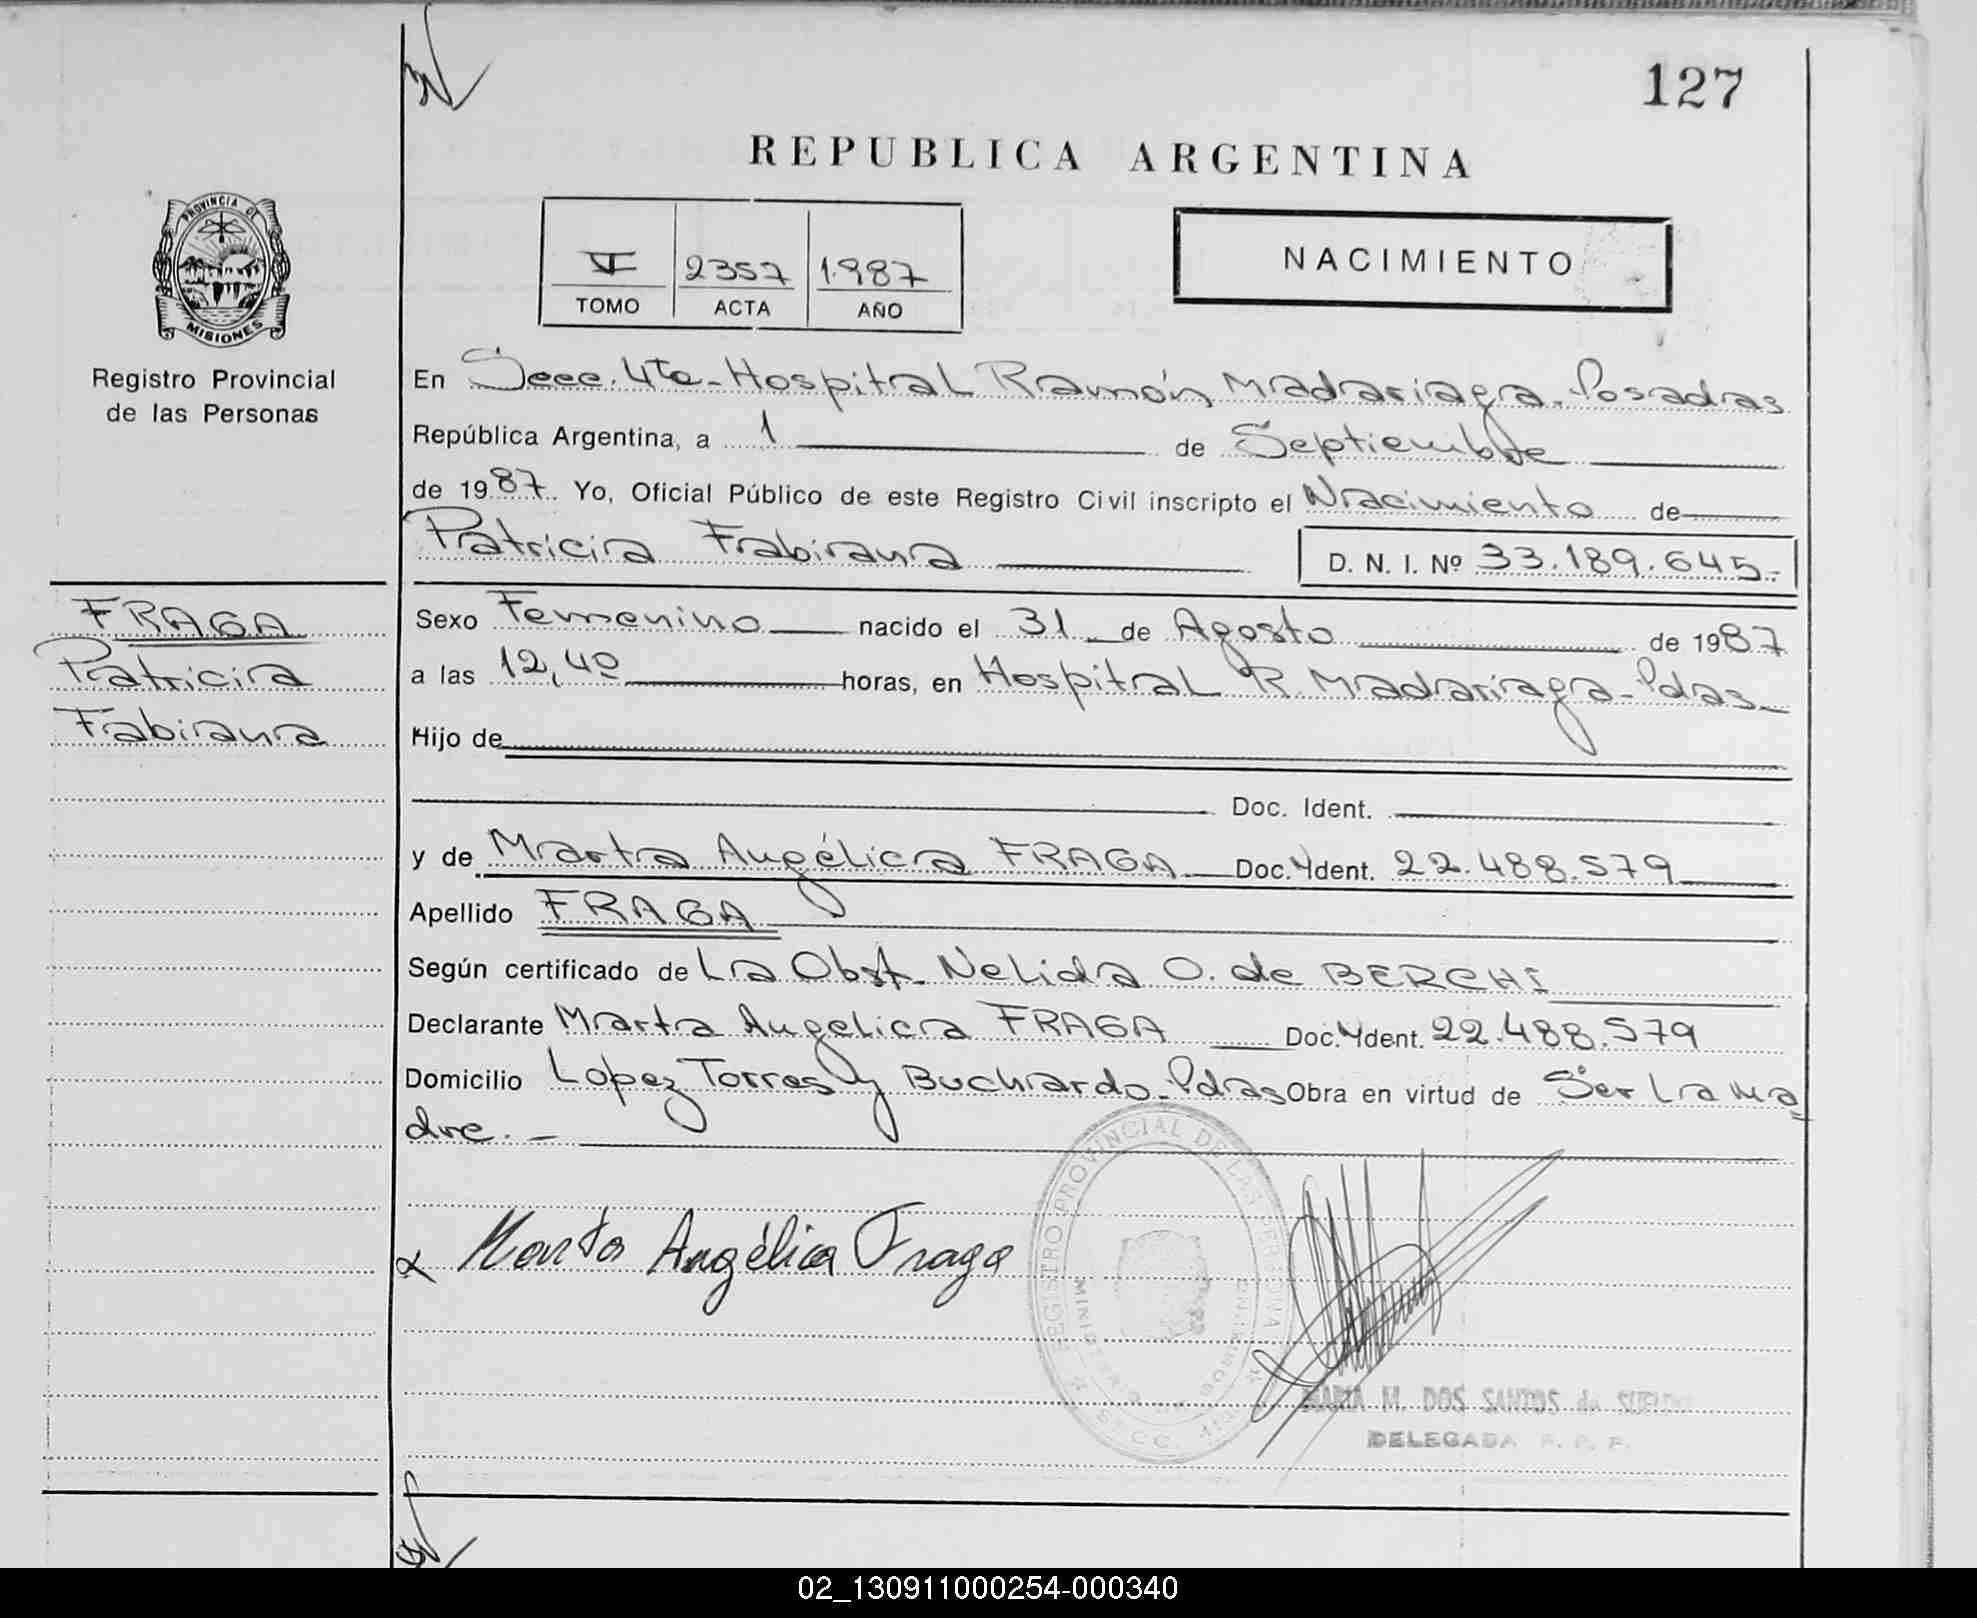 127
REPUBLICA ARGENTINA
PROVINCIA DE
MISIONES
Registro Provincial
de las Personas
VI 2357 1.987
TOMO ACTA AÑO
NACIMIENTO
En Secc. 4ta - Hospital Ramón Madariaga. Posadas
República Argentina, a 1 de Septiembre
de 1987. Yo, Oficial Público de este Registro Civil inscripto el Nacimiento de
Patricia Fabiana D. N. I. Nº 33.189.645.-
FRAGA
Patricia
Fabiana
Sexo Femenino nacido el 31 de Agosto de 1987
a las 12,40 horas, en Hospital R. Madariaga - Pdas
Hijo de
Doc. Ident.
y de Marta Angélica FRAGA Doc. Ydent. 22.488.579
Apellido FRAGA
Según certificado de La Obst. Nelida O. de BERCHI
Declarante Marta Angelica FRAGA Doc. Ydent. 22.488.579
Domicilio Lopez Torres y Buchardo - Pdas Obra en virtud de Ser la ma
dre. -
REGISTRO PROVINCIAL DE LAS PERSONAS
Marta Angélica Fraga
MARIA M. DOS SANTOS de
DELEGADA R. P. P.
02_130911000254-000340